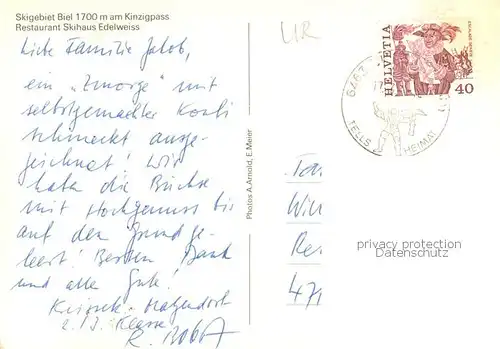 Skigebiet Biel 1700 m am Kinzigpass
Restaurant Skihaus Edelweiss
UR
Liebe Familie Jakob,
ein "Zmorge" mit
selbstgemachter Konfi
schmeckt ausge-
zeichnet! Wir
haben die Büchse
mit Hochgenuss bis
auf den Grund ge-
leert! Besten Dank
und alle Gute!
2. / 3. Klasse
Photos A. Arnold, E. Meier
HELVETIA
40
TELLS HEIMAT
Re
privacy protection
Datenschutz